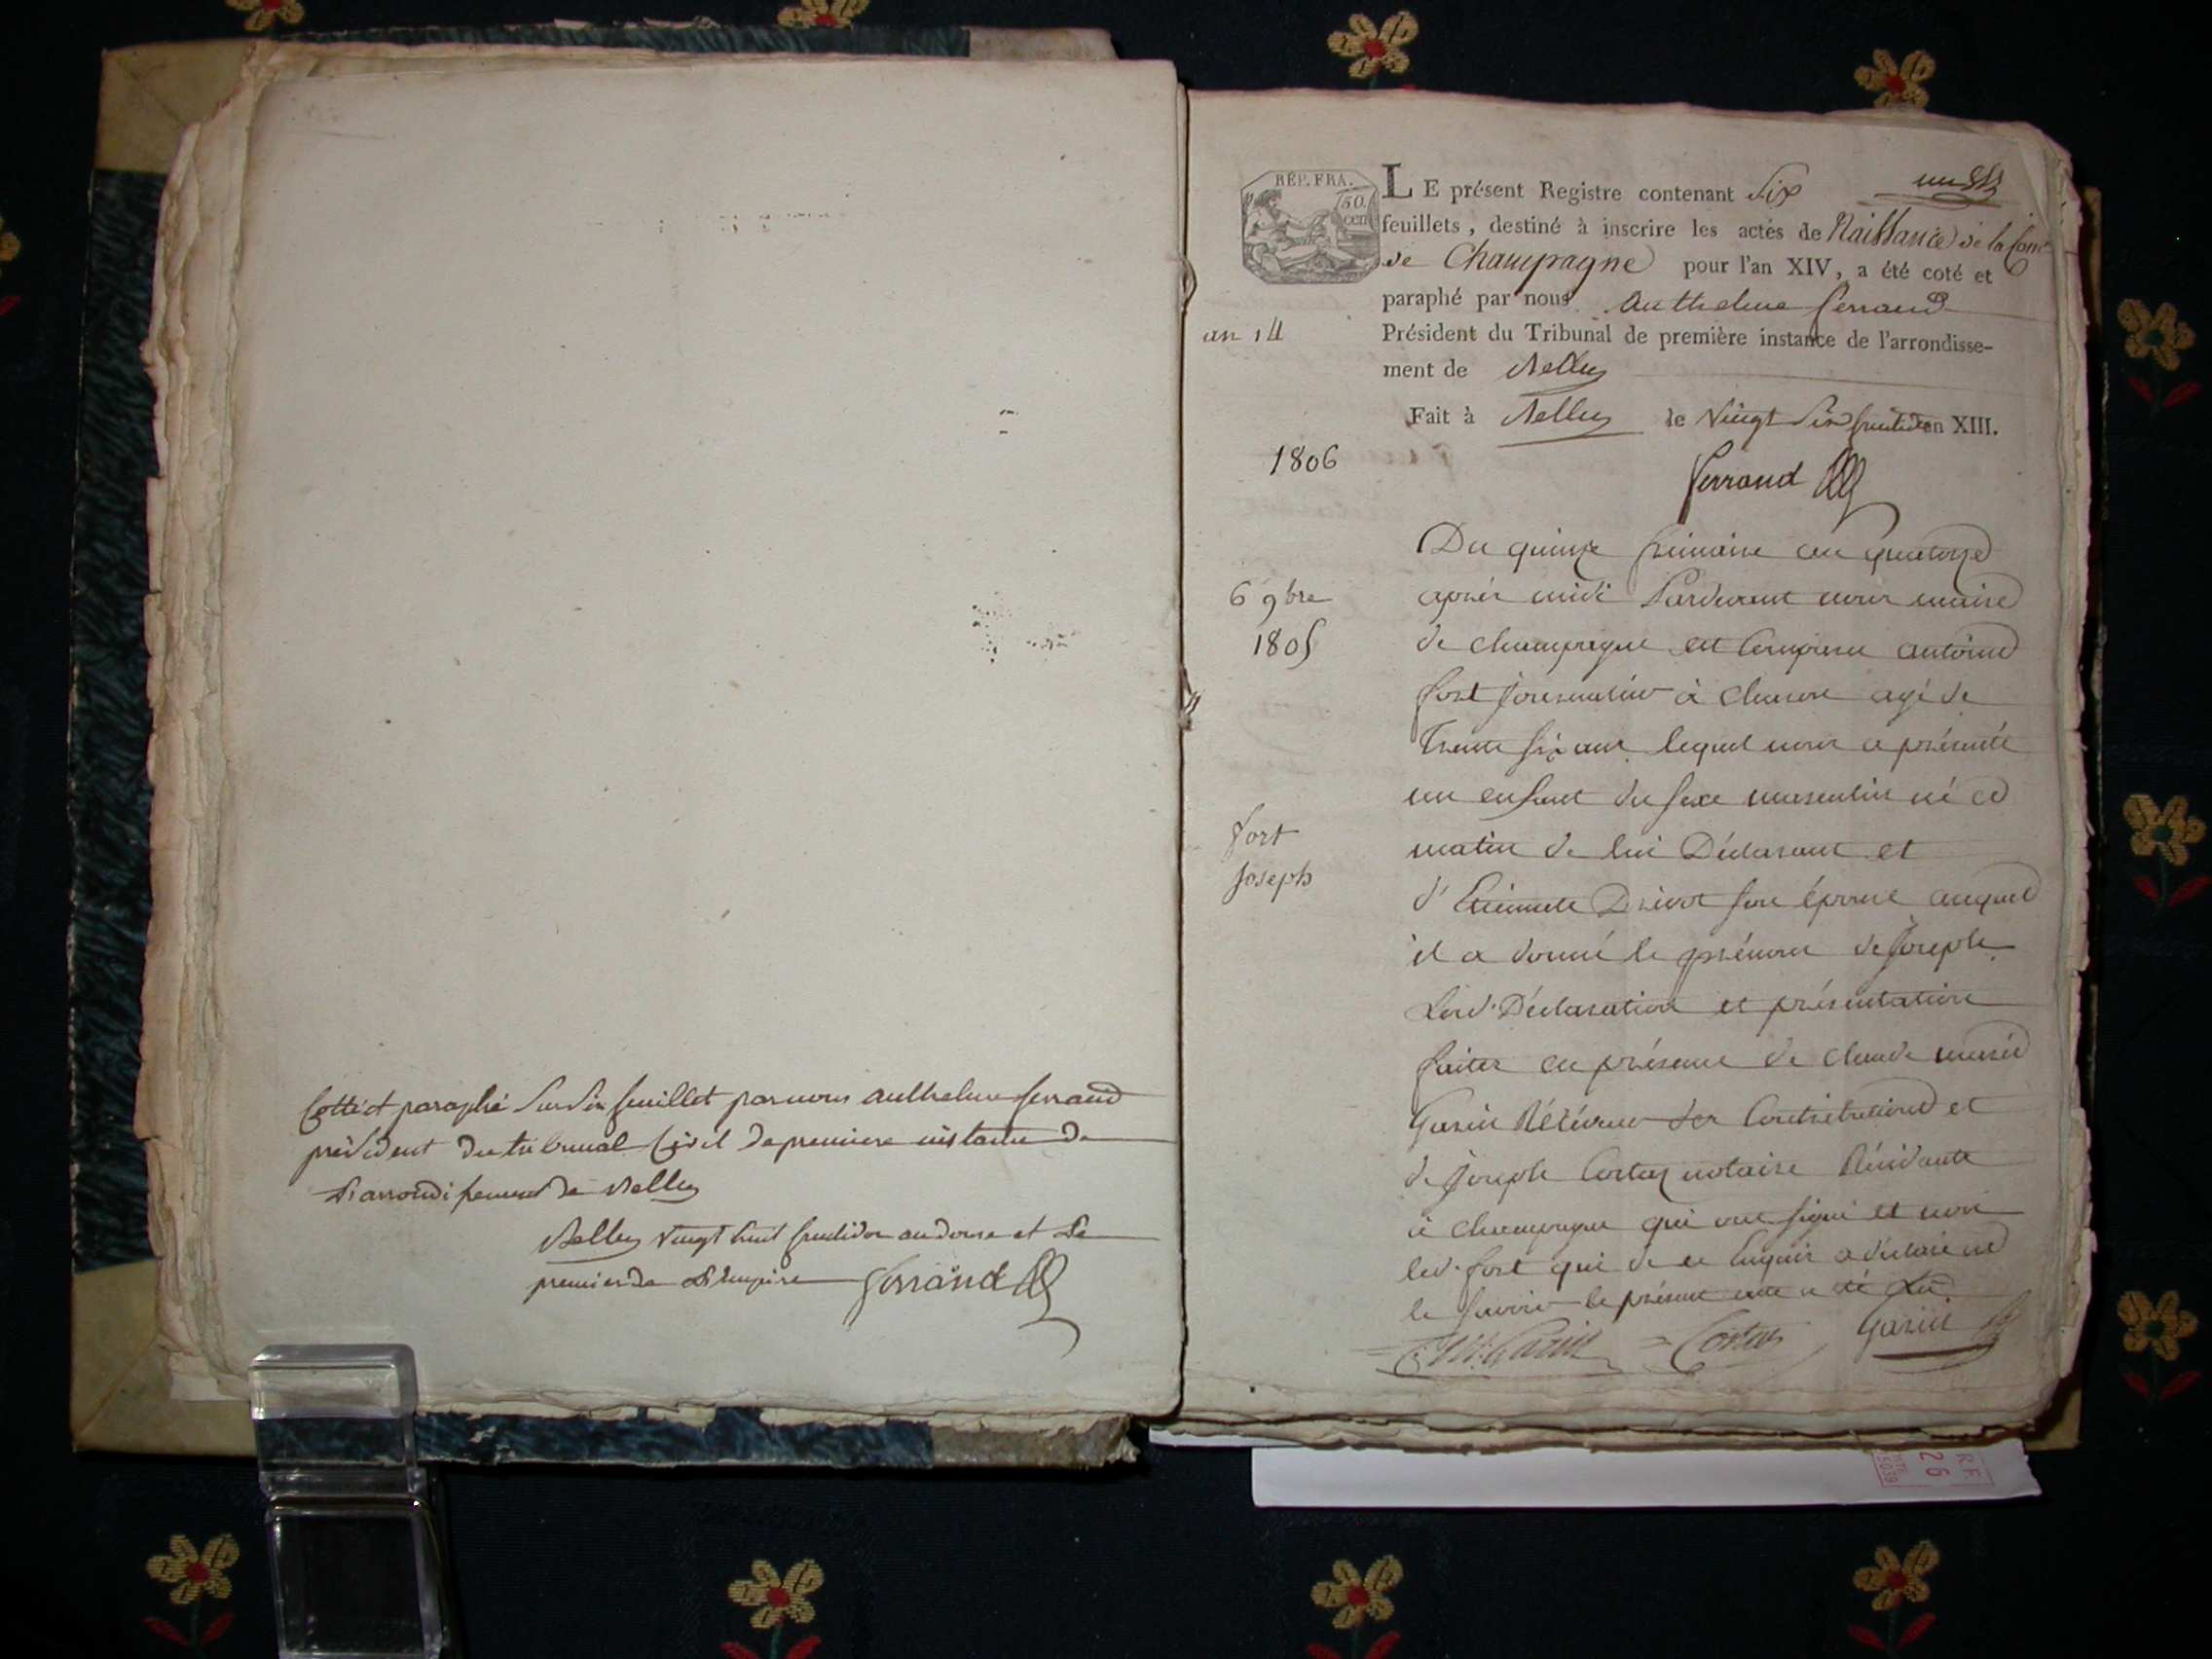 Cotté et paraphé Sur Six feuillet par nous anthelme ferrand
président du tribunal Civil de premiere instance de
L'arrondissement de Belley
Belley vingt huit fructidor an douze et Le
premier de L'Empire Ferrand
RÉP. FRA.
50 cent
un
LE présent Registre contenant Six
feuillets, destiné à inscrire les actes de Naissance de la Com.
de Champagne pour l'an XIV, a été coté et
paraphé par nous Anthelme ferrand
an 14
Président du Tribunal de première instance de l'arrondisse-
ment de Belley
Fait à Belley le Vingt Six fructidor an XIII.
1806
Ferrand
Du quinze frimaire an quatorze
6 9bre
après midi Pardevant nous maire
1805
de champagne est Comparu antoine
fort journalier à chavor agé de
Trente six ans lequel nous a présenté
un enfant du sexe masculin né ce
fort
matin de lui Déclarant et
joseph
d'Etiennette Drivot son épouse auquel
il a donné le prénom de joseph
Lesd. Déclaration et présentation
faites en présence de claude
Garin des Contributions et
de joseph Cortas notaire Résidants
à champagne qui ont signé et non
led. fort qui de ce Enquis a déclaré ne
le savoir le présent acte a été Lû
Garin Cortas Garin
R.F.
26